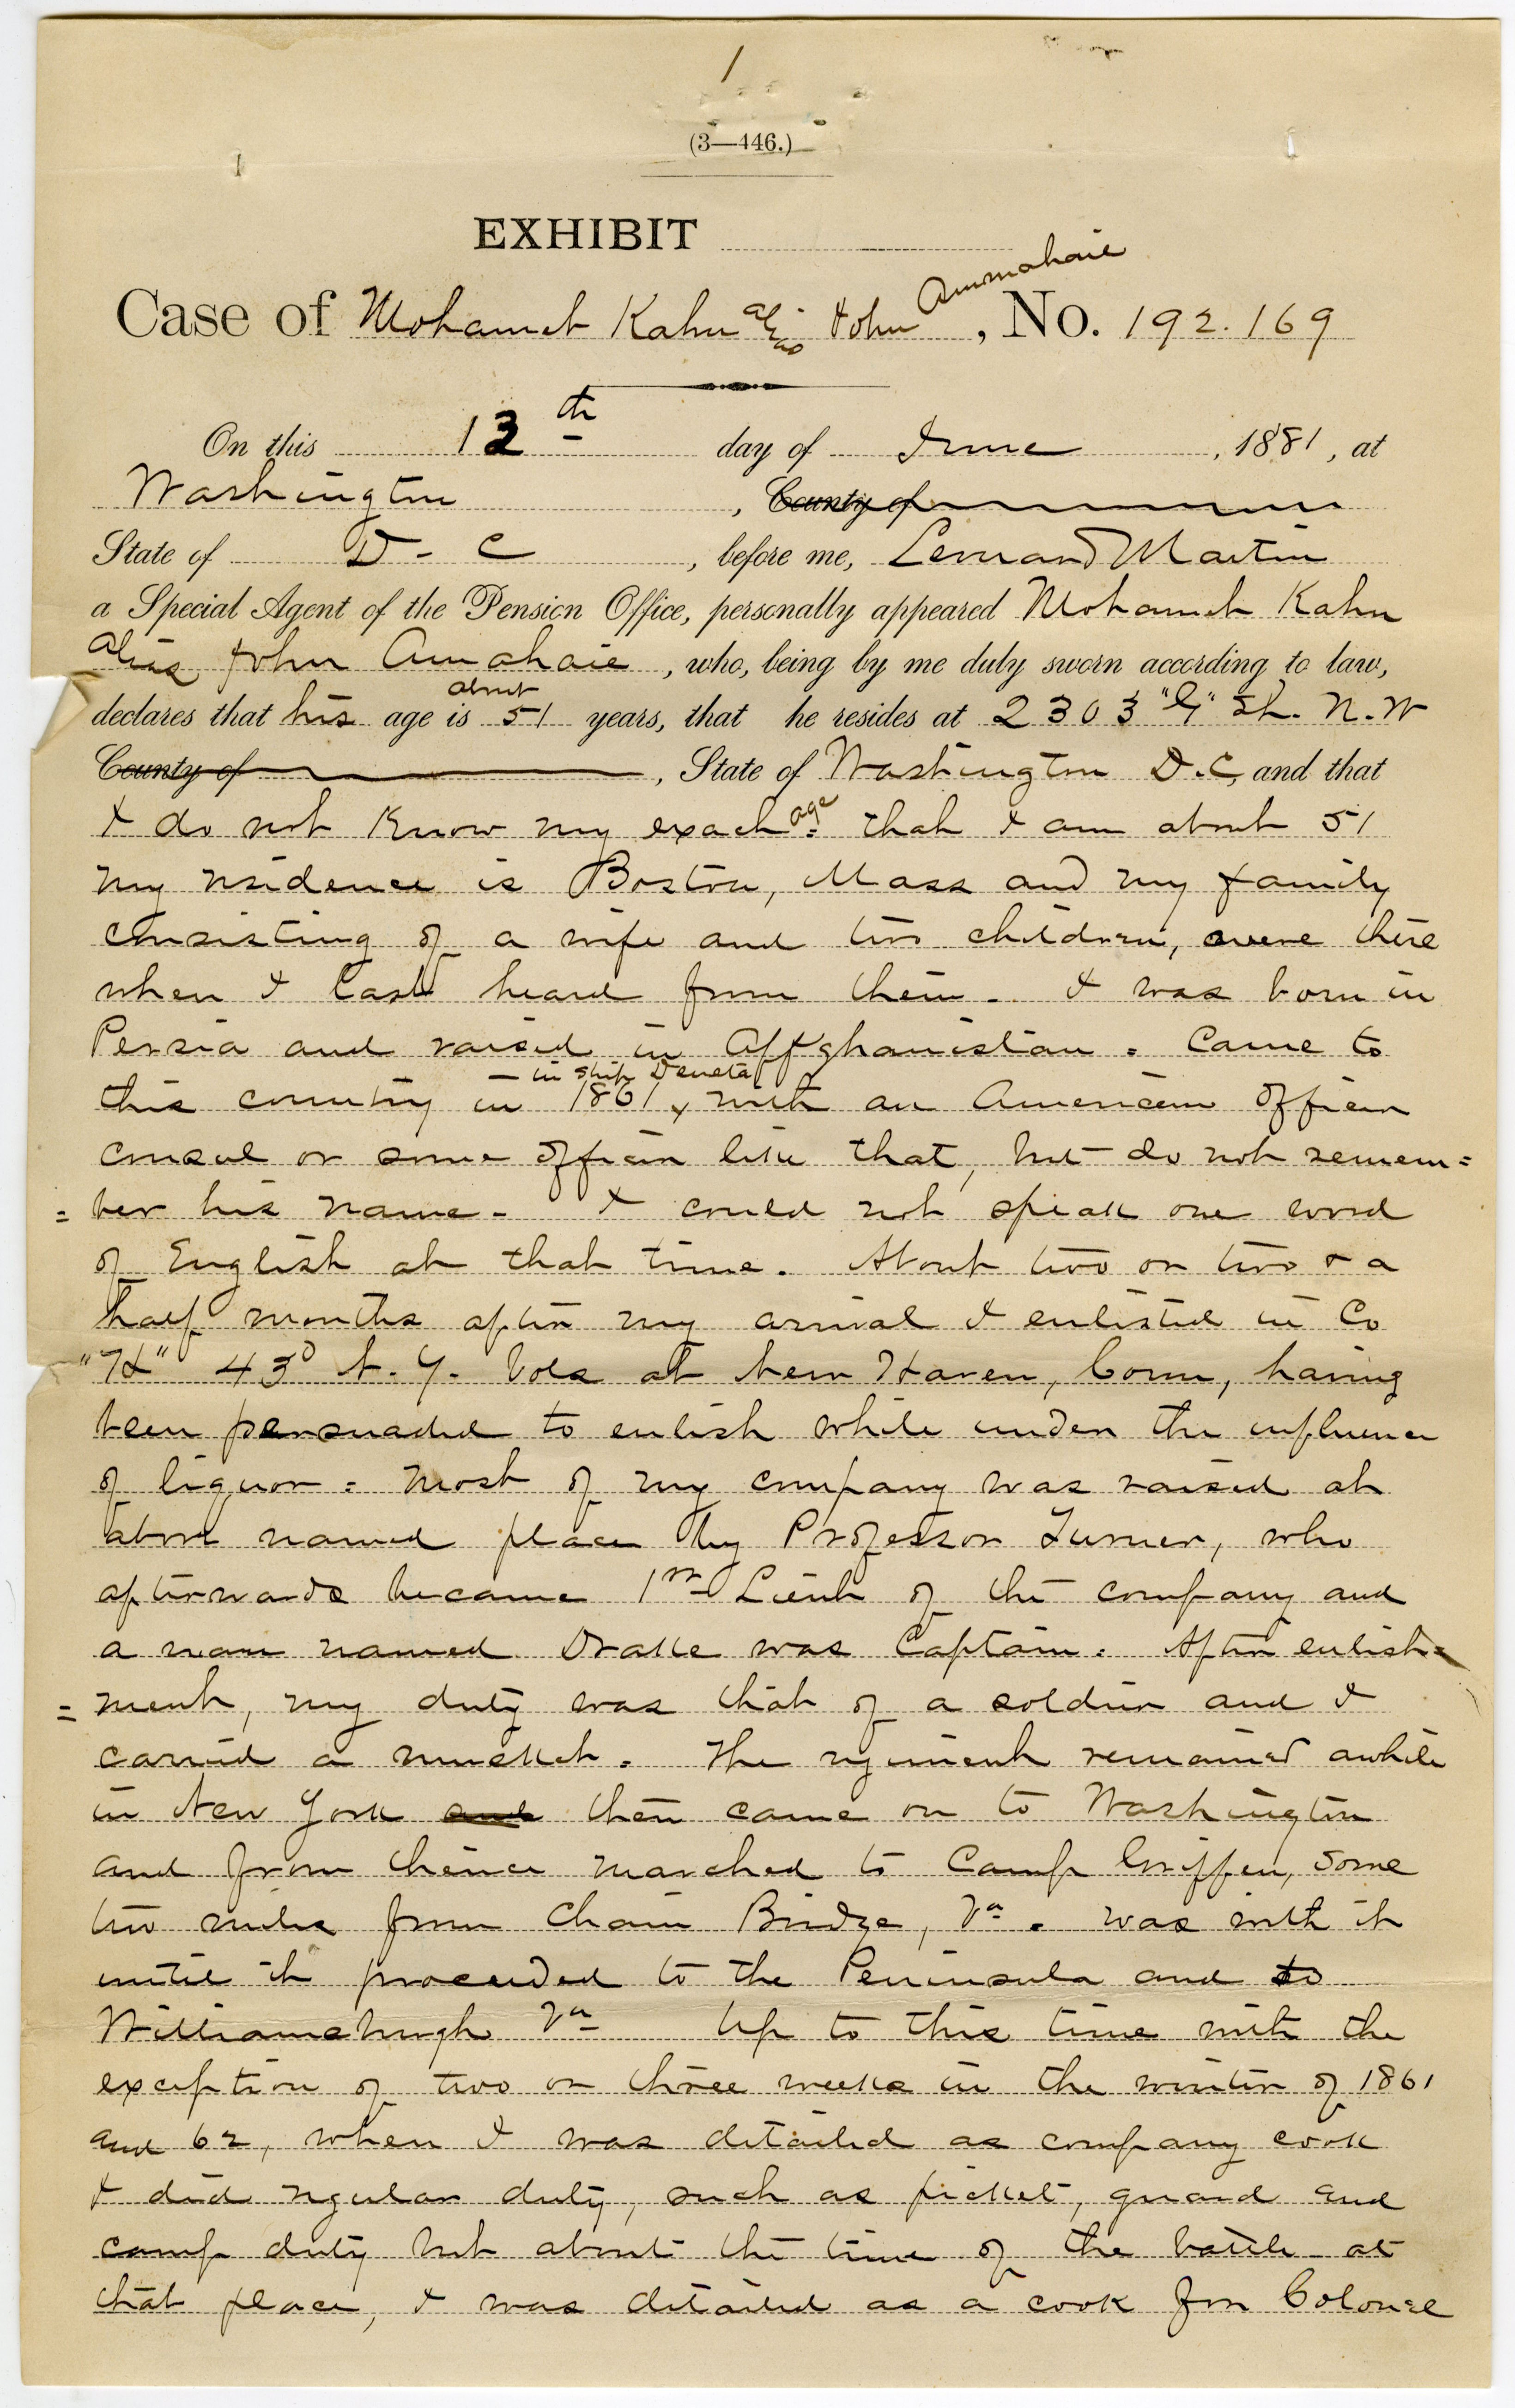 1
(3—446.)
EXHIBIT
Case of Mohamet Kahn alias John Ammahaie, No. 192.169
On this 13th day of June, 1881, at
Washington, County of
State of D. C, before me, Leonard Martin
a Special Agent of the Pension Office, personally appeared Mohamet Kahn
alias John Amahaie, who, being by me duly sworn according to law,
declares that his age is about 51 years, that he resides at 2303 "G" St. N.W
County of, State of Washington D.C, and that
I do not know my exact age: that I am about 51
my residence is Boston, Mass and my family
consisting of a wife and two children, were there
when I last heard from them. I was born in
Persia and raised in Affghanistan. Came to
this country in 1861, in ship Deneta with an American officer
consul or some officer like that, but do not remem=
=ber his name. I could not speak one word
of English at that time. About two or two & a
half months after my arrival I enlisted in Co
"H" 43d N.Y. Vols at New Haven, Conn, having
been persuaded to enlist while under the influence
of liquor: Most of my company was raised at
above named place by Professor Turner, who
afterwards became 1st Lieut of the company and
a man named Drake was Captain: After enlist=
=ment, my duty was that of a soldier and I
carried a musket. The regiment remained awhile
in New York and then came on to Washington
and from thence marched to Camp Griffen, some
two miles from Chain Bridge, Va. Was with it
until it proceeded to the Peninsula and to
Williamsburgh Va Up to this time with the
exception of two or three weeks in the winter of 1861
and 62, when I was detailed as company cook
I did regular duty, such as picket, guard and
camp duty but about the time of the battle at
that place, I was detailed as a cook for Colonel